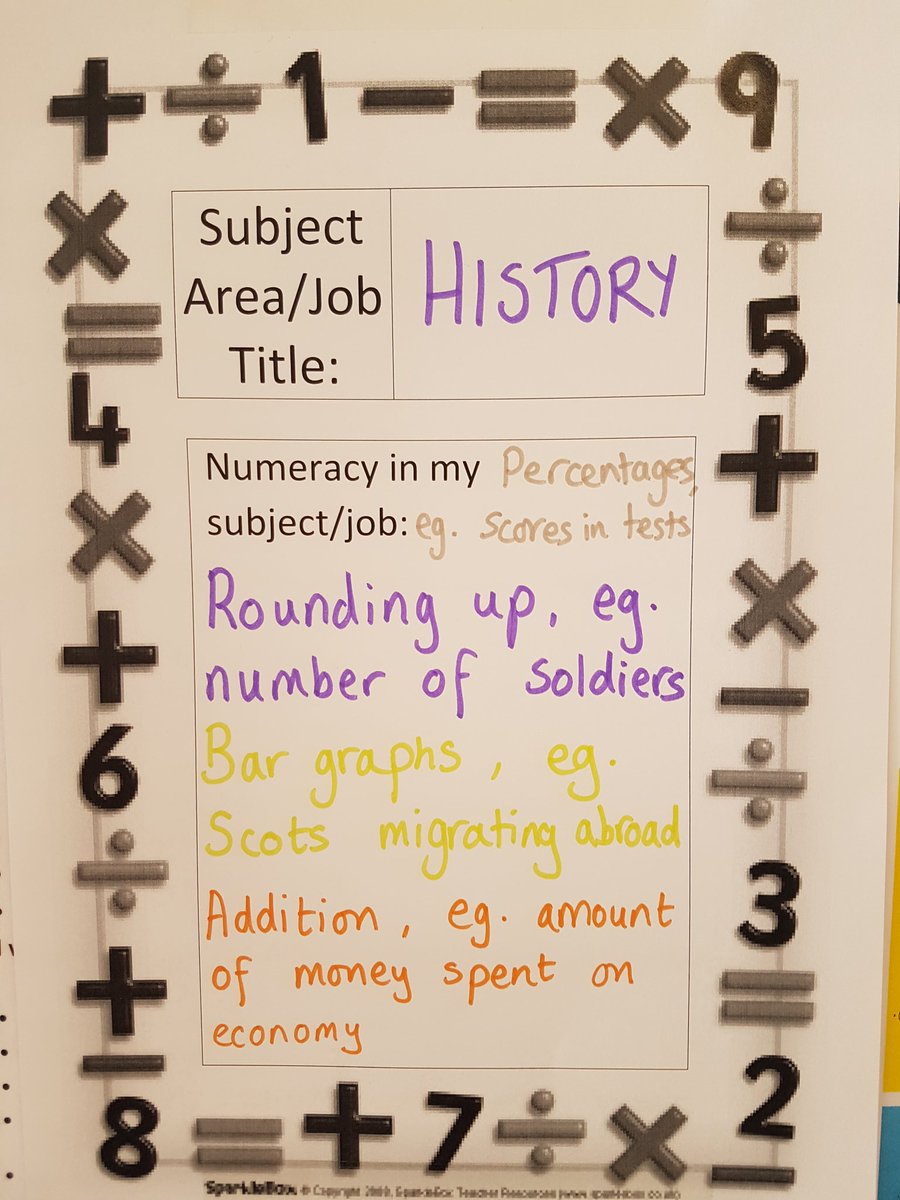 + ÷ 1 − = × 9
Subject
Area/Job
Title:
HISTORY
Numeracy in my Percentages,
subject/job: eg. Scores in tests
Rounding up, eg.
number of soldiers
Bar graphs, eg.
Scots migrating abroad
Addition, eg. amount
of money spent on
economy
×
=
4
×
+
6
÷
+
−
÷
5
+
×
−
÷
3
=
2
−
8 = + 7 ÷ ×
SparkleBox © Copyright SparkleBox Teacher Resources (www.sparklebox.co.uk)